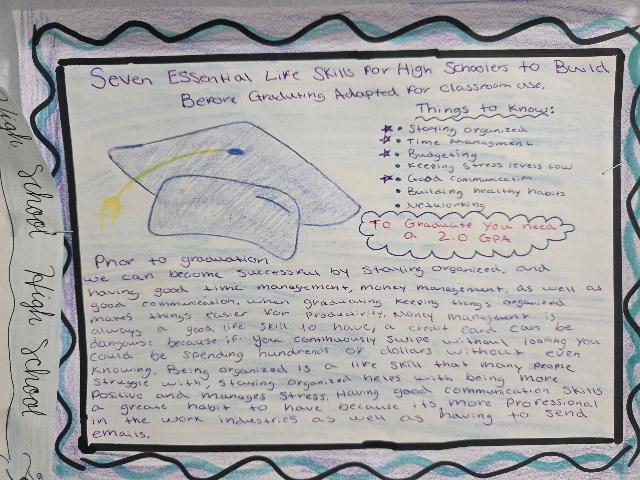 Seven Essential Life Skills For High Schoolers to Build
Before Graduting Adapted For classroom use.
Things to Know:
Staying organized
Time Managment
Budgeting
Keeping stress levels low
Good communication
Building healthy habits
Networking
To Graduate you need
a 2.0 GPA
Prior to graduation
we can become successful by staying organized, and
having good time management, money management, as well as
good communication, when graduating keeping things organized
makes things easier for productivity. Money managment is
always a good life skill to have, a credit card can be
dangous because if you continously swipe without looking you
could be spending hundrends of dollars without even
knowing. Being organized is a life skill that many people
struggle with, staying organized helps with being more
positive and manages stress. Having good communication skills
a greate habit to have because its more professional
in the work industries as well as having to send
emails.
High School High School
High School